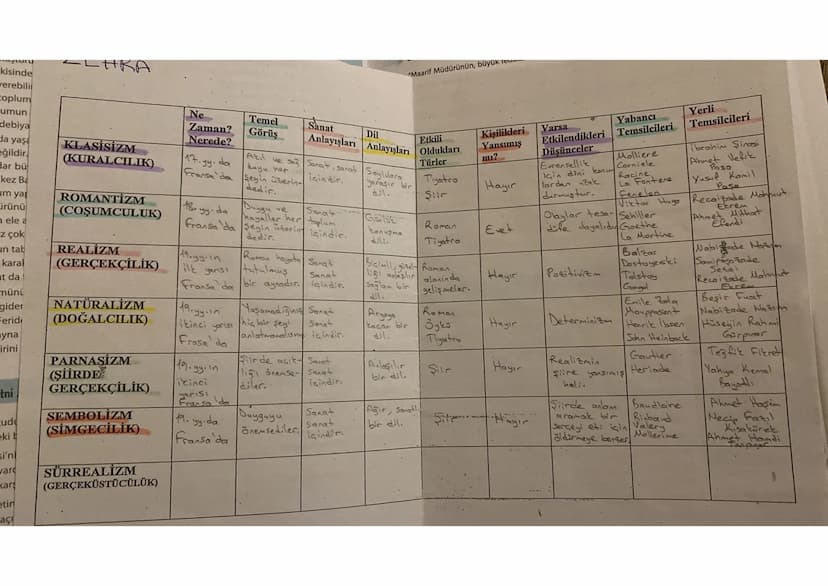 ZEHRA
"Maarif Müdürünün, büyük
Ne Zaman? Nerede?
Temel Görüş
Sanat Anlayışları
Dil Anlayışları
Etkili Oldukları Türler
Kişilikleri Yansımış mı?
Varsa Etkilendikleri Düşünceler
Yabancı Temsilcileri
Yerli Temsilcileri
KLASİSİZM
(KURALCILIK)
17.yy.da
Fransa'da
Akıl ve sağ
duyu her
şeyin üzerin-
dedir.
Sanat, sanat
içindir.
Soylulara
yaraşır bir
dil.
Tiyatro
Şiir
Hayır
Evrensellik
için dini konu
lardan uzak
durmuştur.
Molliere
Corniele
Racine
La Fontene
Fenelon
İbrahim Şinasi
Ahmet Vefik
Paşa
Yusuf Kamil
Paşa
ROMANTİZM
(COŞUMCULUK)
18.yy.da
Fransa'da
Duygu ve
hayaller her
şeyin üzerin
dedir.
Sanat
toplum
içindir.
Günlük
konuşma
dili.
Roman
Tiyatro
Evet
Olaylar tesa-
düfe dayalıdır.
Viktor Hugo
Sehiller
Goethe
La Martine
Recaizade Mahmut
Ekrem
Ahmet Mithat
Efendi
REALİZM
(GERÇEKÇİLİK)
19.yy.ın
ilk yarısı
Fransa'da
Roman hayata
tutulmuş
bir aynadır.
Sanat
Sanat
içindir.
sağlam bir
dil.
Roman
alanında
gelişmeler.
Hayır
Pozitivizm
Balzac
Dostoyevski
Tolstoy
Gogol
Nabizade Nazım
Samipaşazade
Sezai
Recaizade Mahmut
Ekrem
NATÜRALİZM
(DOĞALCILIK)
19.yy.ın
ikinci yarısı
Frasa'da
Yaşamadığınız
hiç bir şeyi
anlatmamalısınız
Sanat
Sanat
içindir.
Argoya
kaçan bir
dil.
Roman
Öykü
Tiyatro
Hayır
Determinizm
Emile Zola
Mauppasent
Henrik İbsen
John Heinback
Beşir Fuat
Nabizade Nazım
Hüseyin Rahmi
Gürpınar
PARNASİZM
(ŞİİRDE
GERÇEKÇİLİK)
19.yy.ın
ikinci
yarısı
Fransa'da
Şiirde açık-
lığı önemse-
diler.
Sanat
Sanat
içindir.
Anlaşılır
bir dil.
Şiir
Hayır
Realizmin
şiire yansımış
hali.
Gautier
Heriade
Tevfik Fikret
Yahya Kemal
Beyatlı
SEMBOLİZM
(SİMGECİLİK)
19.yy.da
Fransa'da
Duyguyu
önemsediler.
Sanat
Sanat
içindir.
Ağır, sanatlı
bir dil.
Hayır
Şiirde anlam
aramak bir
serçeyi eti için
öldürmeye benzer.
Baudlaire
Rinbaud
Valery
Mallerime
Ahmet Haşim
Necip Fazıl
Kısakürek
Ahmet Hamdi
Tanpınar
SÜRREALİZM
(GERÇEKÜSTÜCÜLÜK)